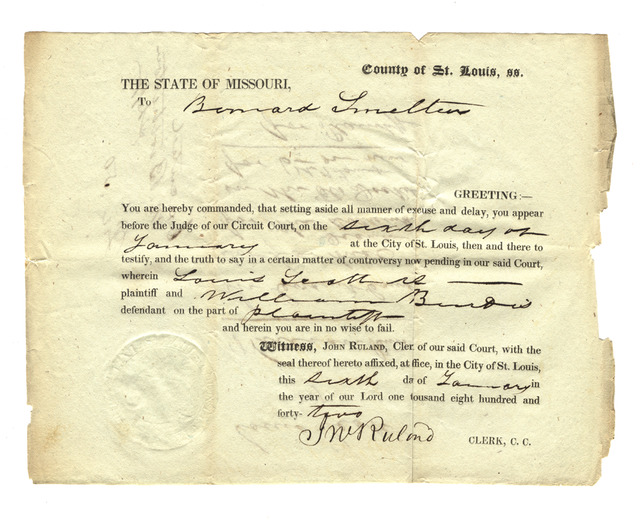 County of St. Louis, ss.
THE STATE OF MISSOURI,
To Bernard Smelter
GREETING:—
You are hereby commanded, that setting aside all manner of excuse and delay, you appear
before the Judge of our Circuit Court, on the sixth day of
January at the City of St. Louis, then and there to
testify, and the truth to say in a certain matter of controversy now pending in our said Court,
wherein Louis Scott is
plaintiff and William Burd is
defendant on the part of plaintiff
and herein you are in no wise to fail.
Witness, JOHN RULAND, Cler of our said Court, with the
seal thereof hereto affixed, at office, in the City of St. Louis,
this sixth da of January in
the year of our Lord one tousand eight hundred and
forty- two
J W Ruland CLERK, C. C.